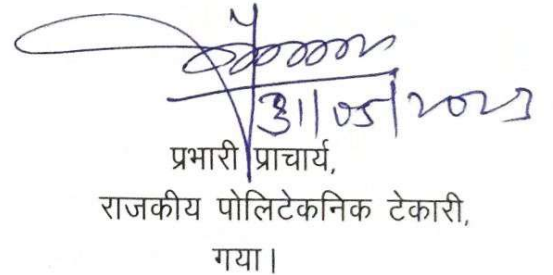 31/05/2023
प्रभारी प्राचार्य,
राजकीय पोलिटेकनिक टेकारी,
गया।